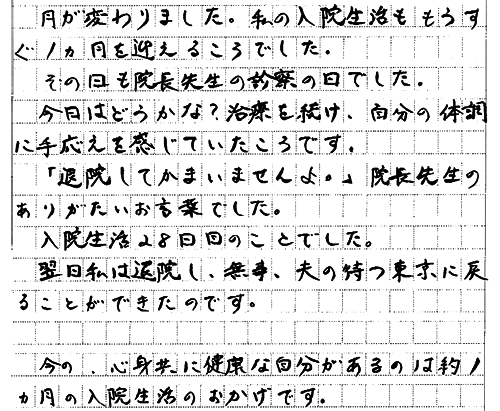 月が変わりました。私の入院生活ももうす
ぐ1ヵ月を迎えるころでした。
その日も院長先生の診察の日でした。
今日はどうかな?治療を続け、自分の体調
に手応えを感じていたころです。
「退院してかまいませんよ。」院長先生の
ありがたいお言葉でした。
入院生活28日目のことでした。
翌日私は退院し、無事、夫の待つ東京に戻
ることができたのです。
今の、心身共に健康な自分があるのは約1
ヵ月の入院生活のおかげです。